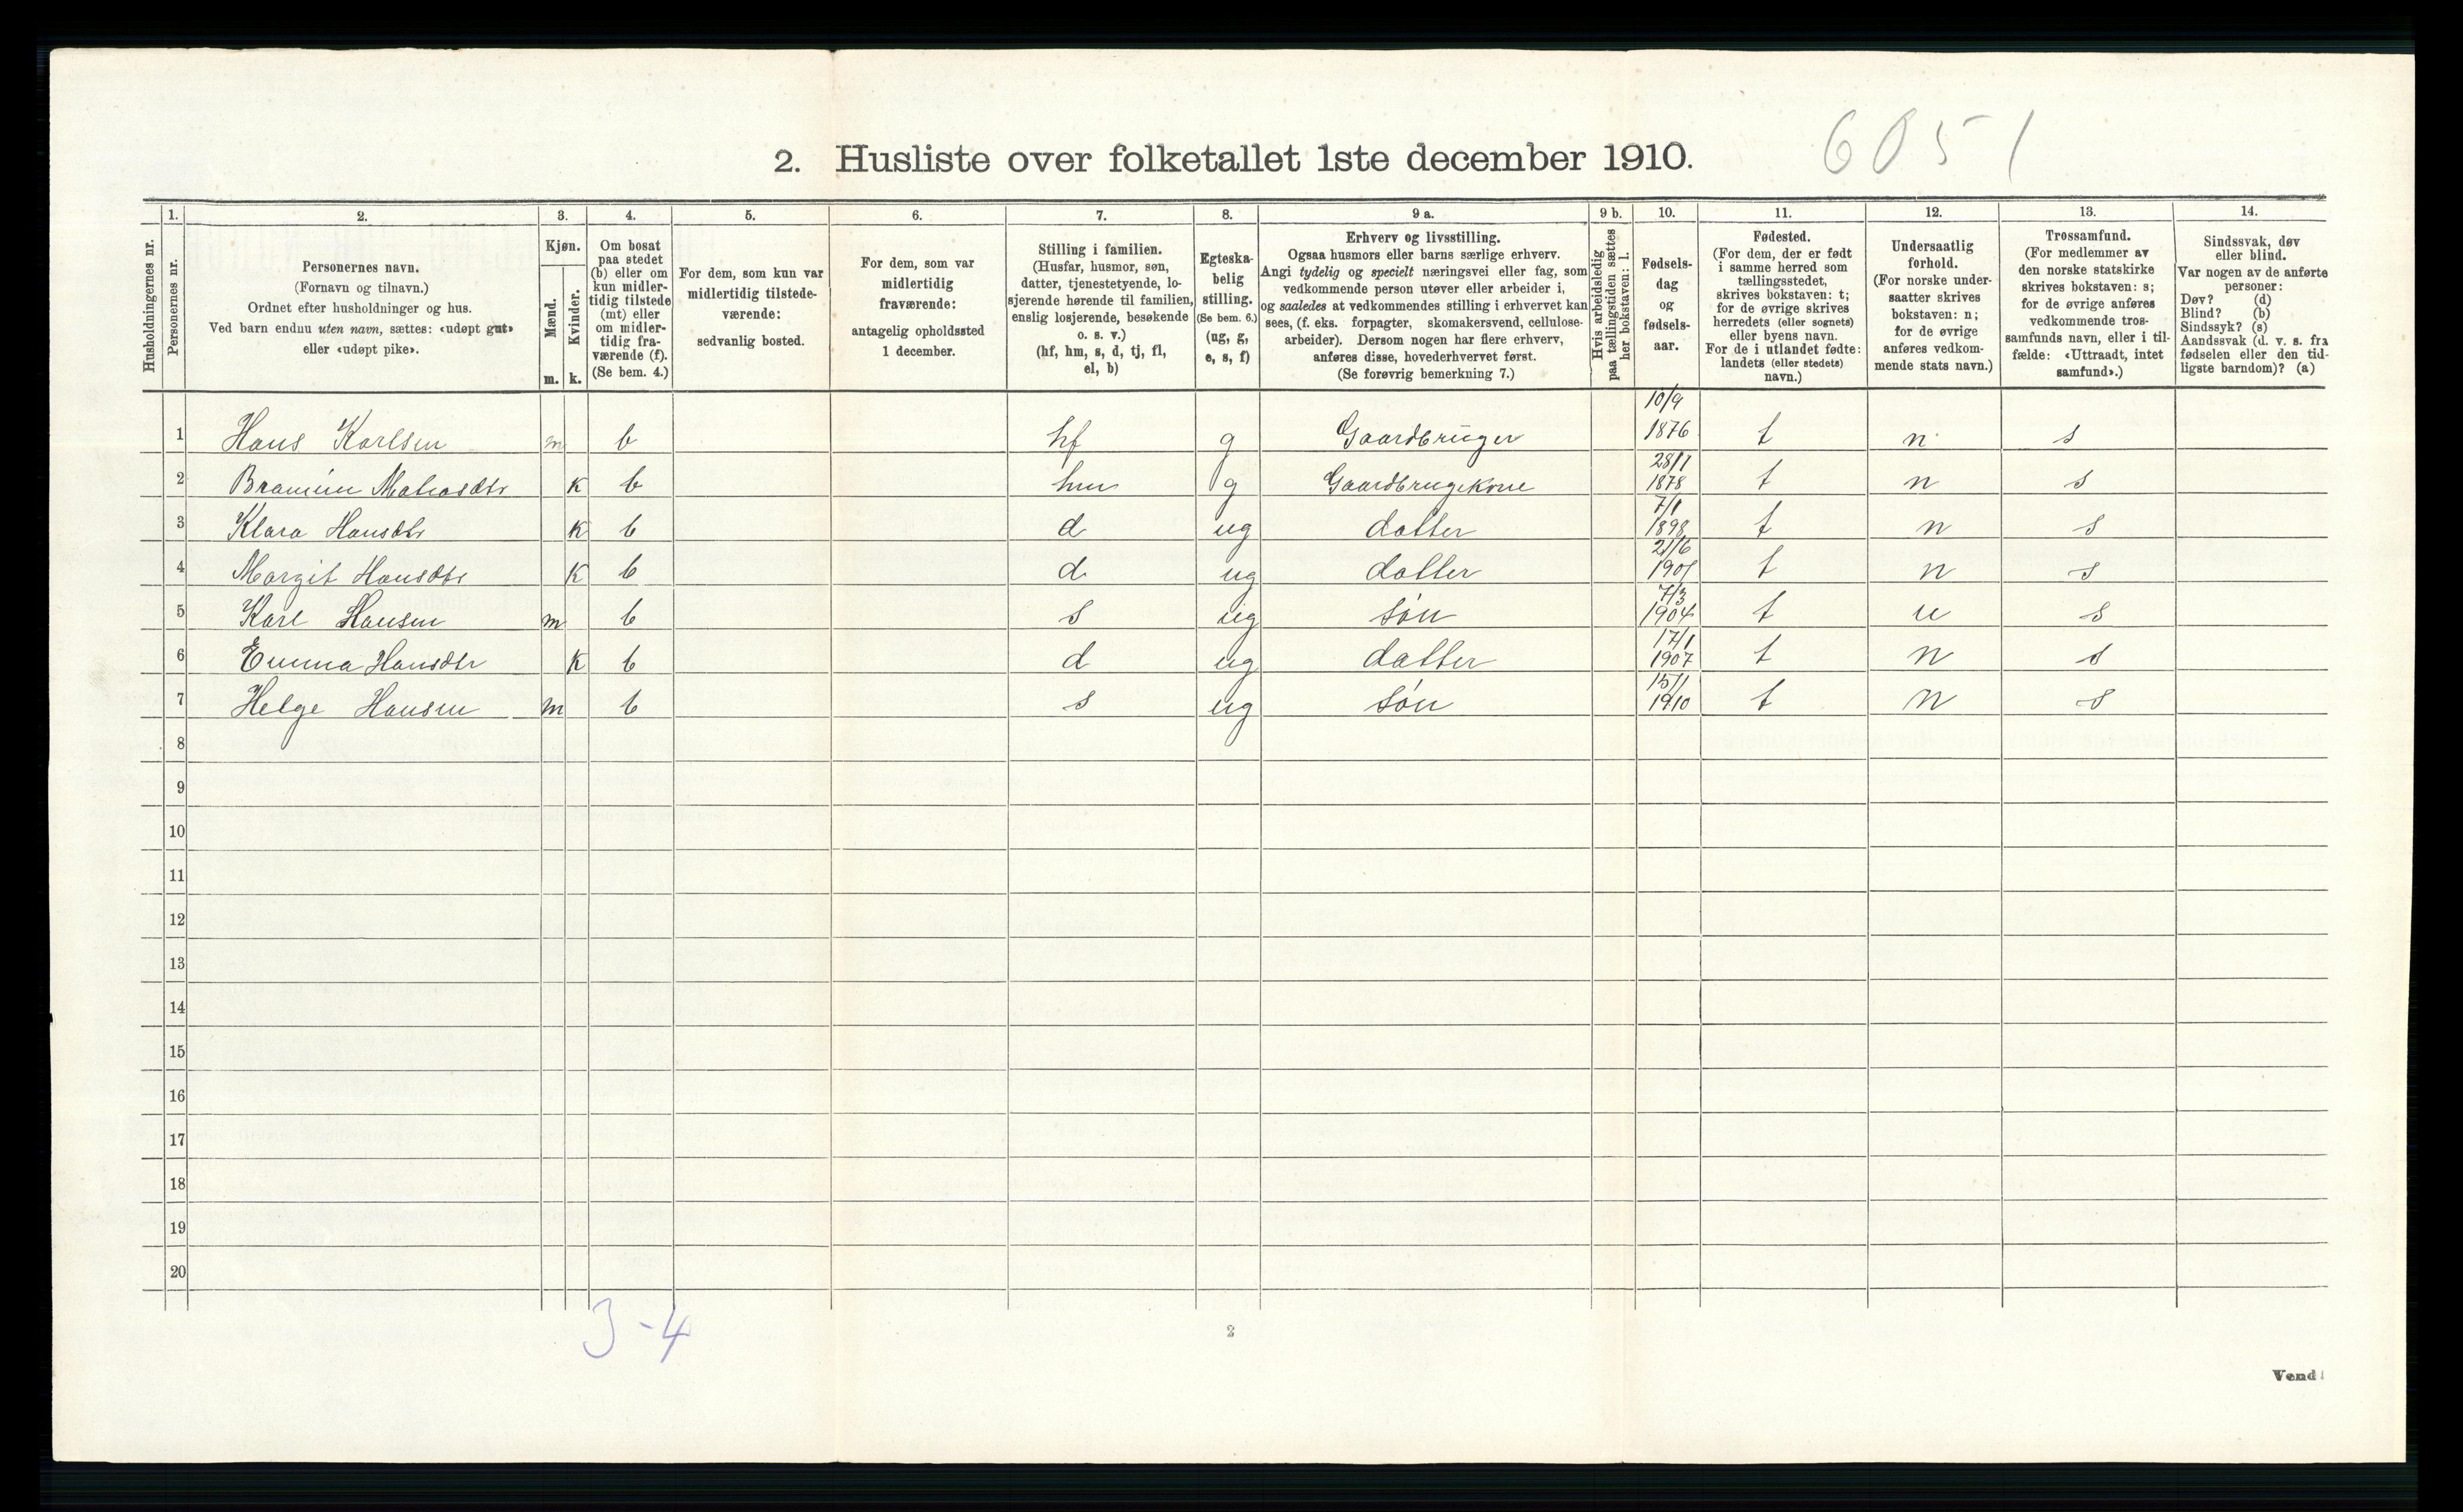 6051
2. Husliste over folketallet 1ste december 1910.
1. 2. 3. 4. 5. 6. 7. 8. 9 a. 9 b. 10. 11. 12. 13. 14.
Husholdningernes nr.
Personernes nr.
Personernes navn.
(Fornavn og tilnavn.)
Ordnet efter husholdninger og hus.
Ved barn endnu uten navn, sættes: «udøpt gut»
eller «udøpt pike».
Kjøn.
Mænd.
Kvinder.
m. k.
Om bosat
paa stedet
(b) eller om
kun midler-
tidig tilstede
(mt) eller
om midler-
tidig fra-
værende (f).
(Se bem. 4.)
For dem, som kun var
midlertidig tilstede-
værende:
sedvanlig bosted.
For dem, som var
midlertidig
fraværende:
antagelig opholdssted
1 december.
Stilling i familien.
(Husfar, husmor, søn,
datter, tjenestetyende, lo-
sjerende hørende til familien,
enslig losjerende, besøkende
o. s. v.)
(hf, hm, s, d, tj, fl,
el, b)
Egteska-
belig
stilling.
(Se bem. 6.)
(ug, g,
e, s, f)
Erhverv og livsstilling.
Ogsaa husmors eller barns særlige erhverv.
Angi tydelig og specielt næringsvei eller fag, som
vedkommende person utøver eller arbeider i,
og saaledes at vedkommendes stilling i erhvervet kan
sees, (f. eks. forpagter, skomakersvend, cellulose-
arbeider). Dersom nogen har flere erhverv,
anføres disse, hovederhvervet først.
(Se forøvrig bemerkning 7.)
Hvis arbeidsledig
paa tællingstiden sættes
her bokstaven: l.
Fødsels-
dag
og
fødsels-
aar.
Fødested.
(For dem, der er født
i samme herred som
tællingsstedet,
skrives bokstaven: t;
for de øvrige skrives
herredets (eller sognets)
eller byens navn.
For de i utlandet fødte:
landets (eller stedets)
navn.)
Undersaatlig
forhold.
(For norske under-
saatter skrives
bokstaven: n;
for de øvrige
anføres vedkom-
mende stats navn.)
Trossamfund.
(For medlemmer av
den norske statskirke
skrives bokstaven: s;
for de øvrige anføres
vedkommende tros-
samfunds navn, eller i til-
fælde: «Uttraadt, intet
samfund».)
Sindssvak, døv
eller blind.
Var nogen av de anførte
personer:
Døv? (d)
Blind? (b)
Sindssyk? (s)
Aandssvak (d. v. s. fra
fødselen eller den tid-
ligste barndom)? (a)
1 Hans Karlsen m b hf g Gaardbruger 10/9 1876 t n s
2 K b hm g Gaardbrugekone 28/1 1878 t n s
3 Klara Hansdtr K b d ug datter 7/1 1898 t n s
4 Margit Hansdtr K b d ug datter 21/6 t n s
5 Karl Hansen m b s ug søn 7/3 1904 t n s
6 Emma Hansdtr K b d ug datter 17/1 1907 t n s
7 Helge Hansen m b s ug søn 15/1 1910 t n s
8
9
10
11
12
13
14
15
16
17
18
19
20
3-4
2
Vend!